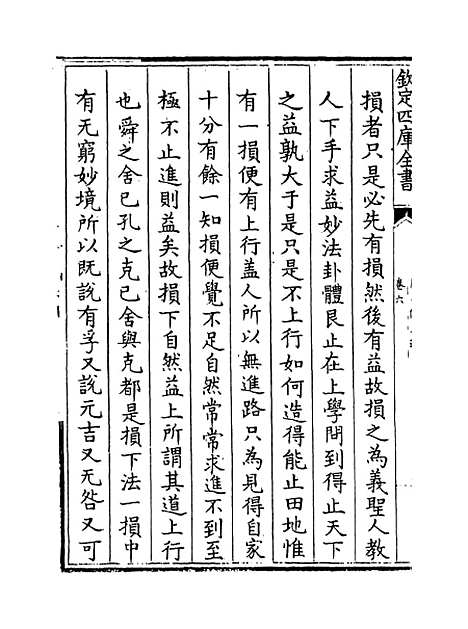 欽定四庫全書
卷六
損者只是必先有損然後有益故損之為義聖人教
人下手求益妙法卦體艮止在上學問到得止天下
之益孰大于是只是不上行如何造得能止田地惟
有一損便有上行蓋人所以無進路只為見得自家
十分有餘一知損便覺不足自然常常求進不到至
極不止進則益矣故損下自然益上所謂其道上行
也舜之舍已孔之克已舍與克都是損下法一損中
有无窮妙境所以既說有孚又說元吉又无咎又可